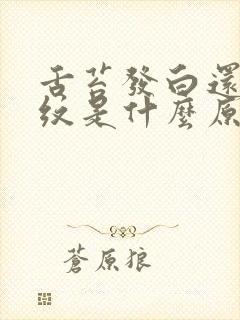 舌苔發白還
紋是什麼原
蒼原狼